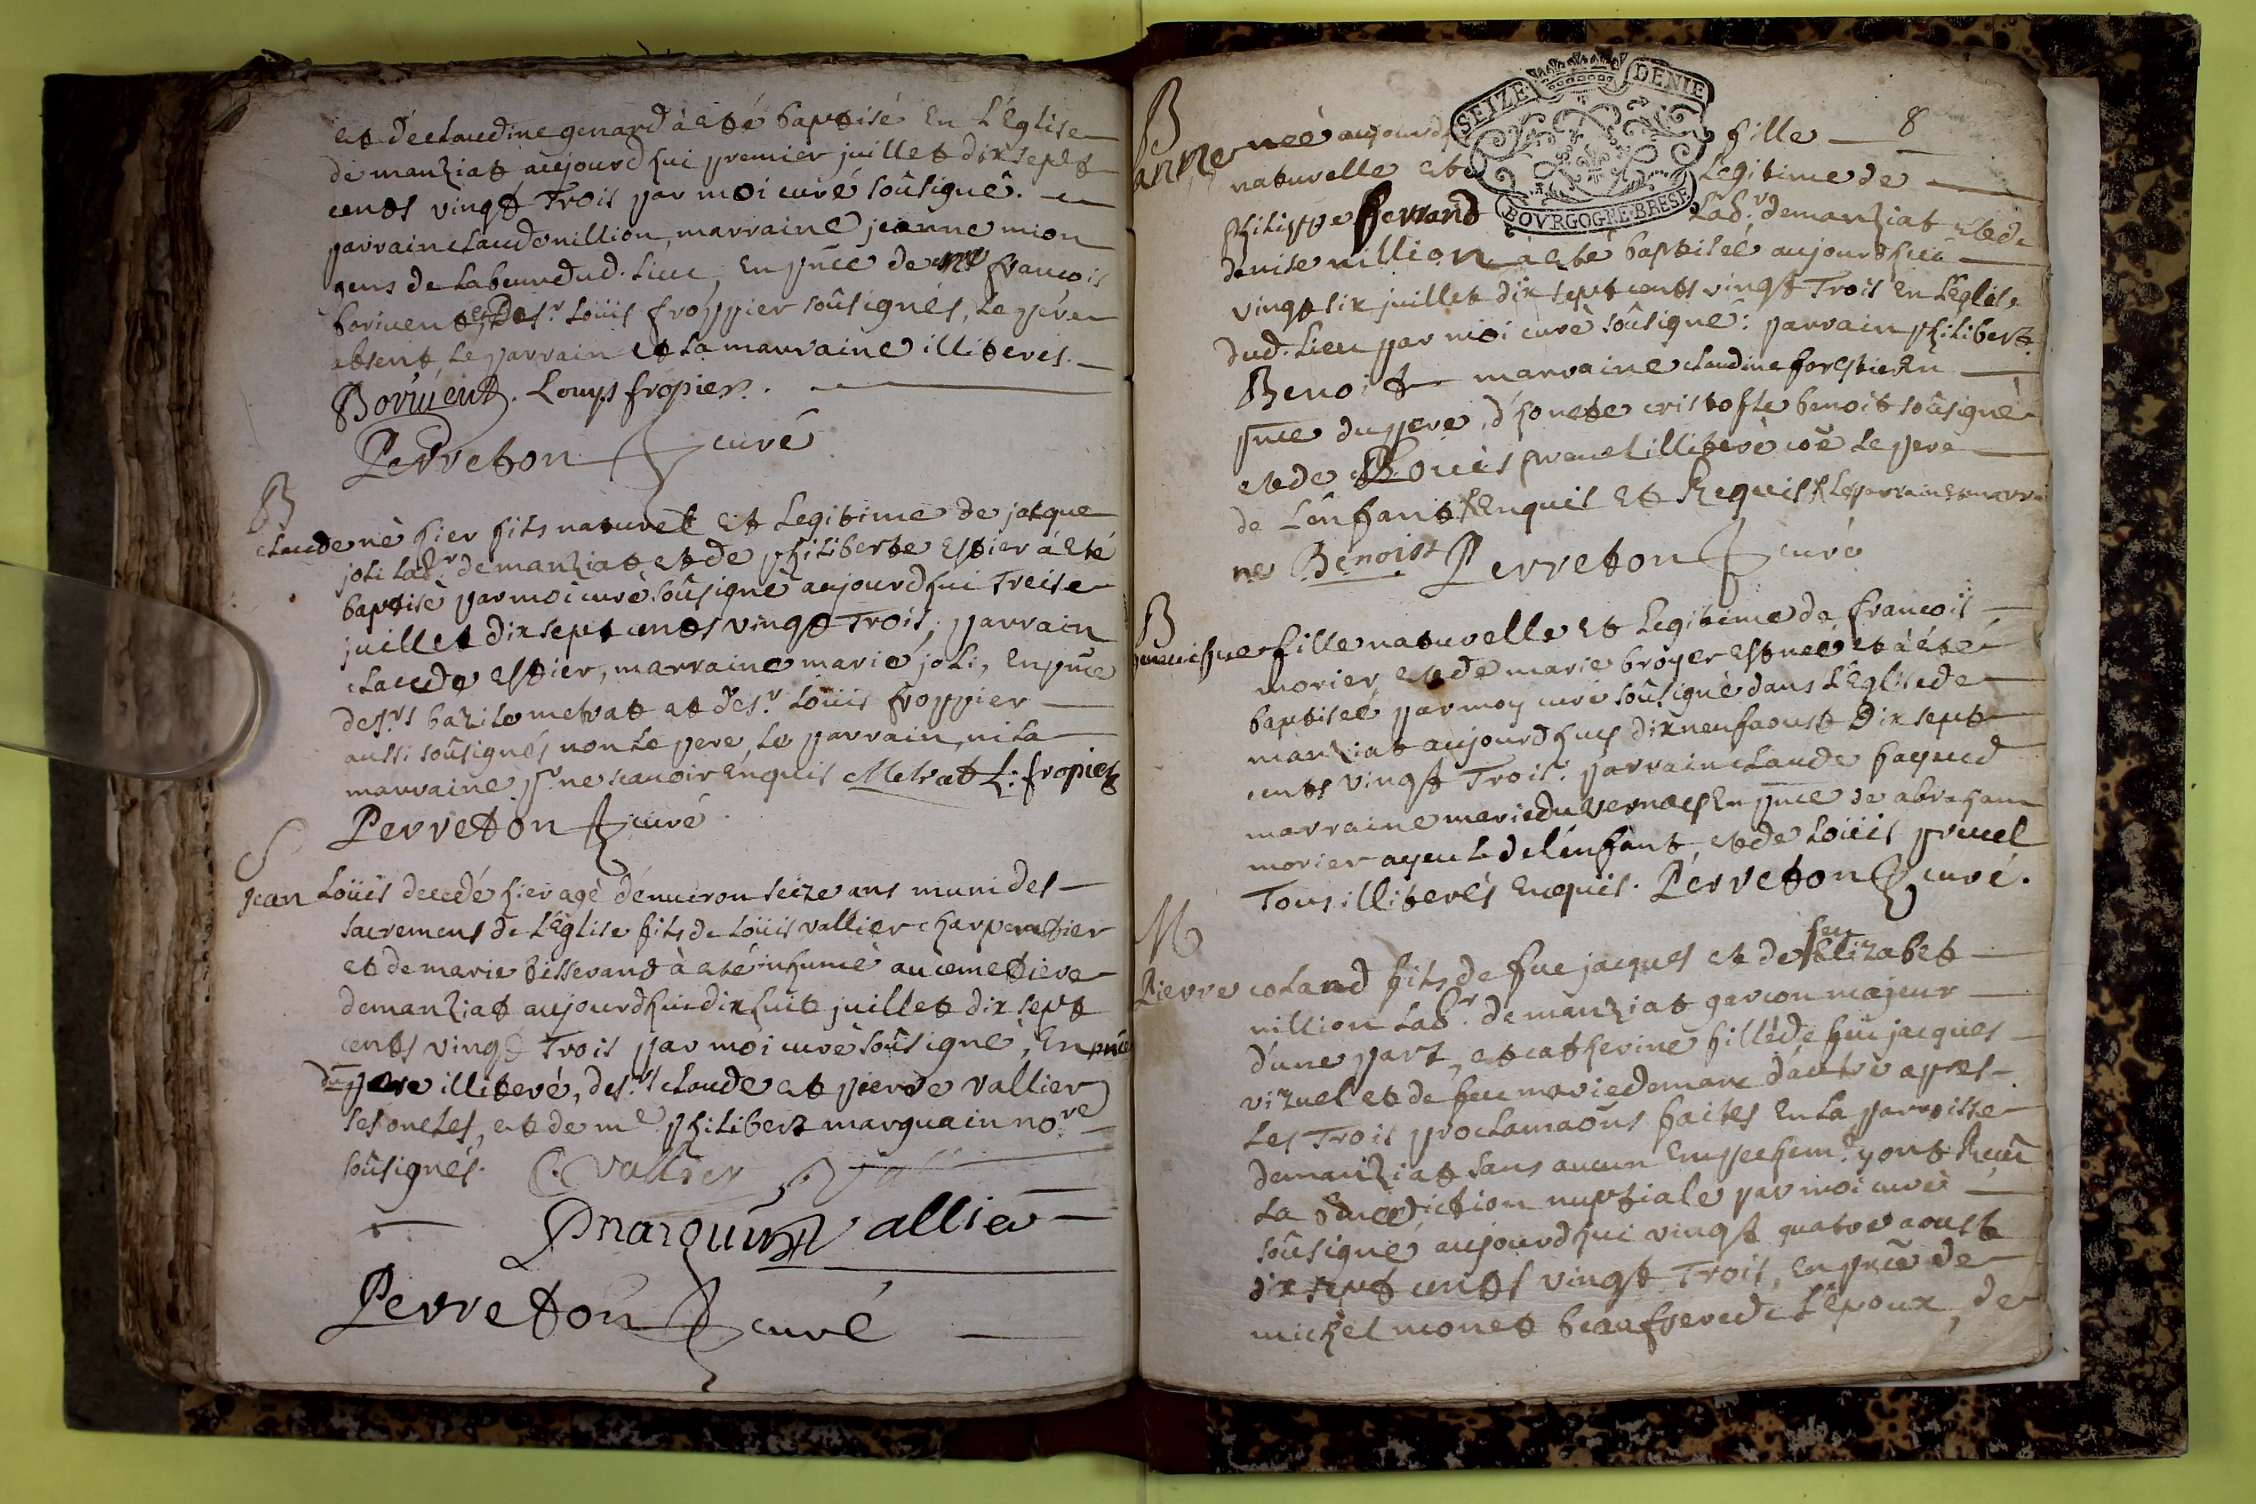 et de claudine genard à eté baptisé en L'Eglise
de manziat aujourdhui premier juillet dix sept
cents vingt Trois par moi curé soûsigné.
parrain claude nillion, marraine jeanne mion
gens de Labeur dud. Lieu, en pnce de mr francois
borivent et de sr. Loüis froppier soûsignés, Le pere
absent Le parrain et La marraine illiterés.
Borivent. Louys fropier.
Perreton curé
B
claude né hier fils naturel et Legitime de jacque
joli Labr. de manziat et de philiberte Estier à eté
baptisé par moi curé soûsigné aujourdhui Treise
juillet dix sept cents vingt Trois, parrain
claude Estier, marraine marie joli, en pnce
de srs bazile metrat et de sr. Loüis froppier
aussi soûsignés non Le pere, Le parrain, ni La
marraine pr. ne scavoir enquis Metrat L: fropier
Perreton curé
S
jean Loüis decedé hier agé d'environ seize ans muni des
sacremens de L'Eglise fils de Loüis vallier charpentier
et de marie tisserand à eté inhumé au cemetiere
de manziat aujourdhui dix huit juillet dix sept
cents vingt Trois par moi curé soûsigné, en pnce
du pere illiteré, de srs claude et pierre vallier
ses oncles, et de me philibert marquain nore
soûsignés. C. Vallier
P marquin Vallier
Perreton curé
8
B
anne née aujourd fille
naturelle et Legitime de
philippe ferrand Labr. de manziat et de
denise nillion à eté baptisée aujourdhui
vingt six juillet dix sept cents vingt Trois en L'Eglise
dud. Lieu par moi curé soûsigné: parrain philibert
Benoit marraine claudine forestier En
pnce du pere, d'honete cristofle benoit soûsigné
et de Loüis pruel illiteré coe Le pere
de L'enfant Enquis et Requis Le parrain et marrai
ne Benoist Perreton curé
B
fille naturelle et Legitime de francois
morier et de marie broyer est née et à eté
baptisée par moy curé soûsigné dans L'Eglise de
manziat aujourdhuy dixneuf aoust Dix sept
cents vingt Trois: parrain claude
marraine marie du vernay En pnce de abraham
morier ayeul de l'enfant et de Loüis pruel
Tous illiterés enquis. Perreton curé.
M
Pierre coland fils de fue jacques et de feu Elizabet
nillion Labr. de manziat garcon majeur
d'une part, et catherine fille de feu jacques
vizuel et de feue marie demarc d'autre apres
Les Trois proclamaôns faites En La parroisse
de manziat sans aucun Empechemt. y ont Receu
La Benediction nuptiale par moi curé
soûsigné, aujourdhui vingt quatre aoust
dix sept cents vingt Trois, En pnce de
michel monet beaufrere de L'epoux, de
SEIZE DENIE
BOVRGOGNE·BRESE